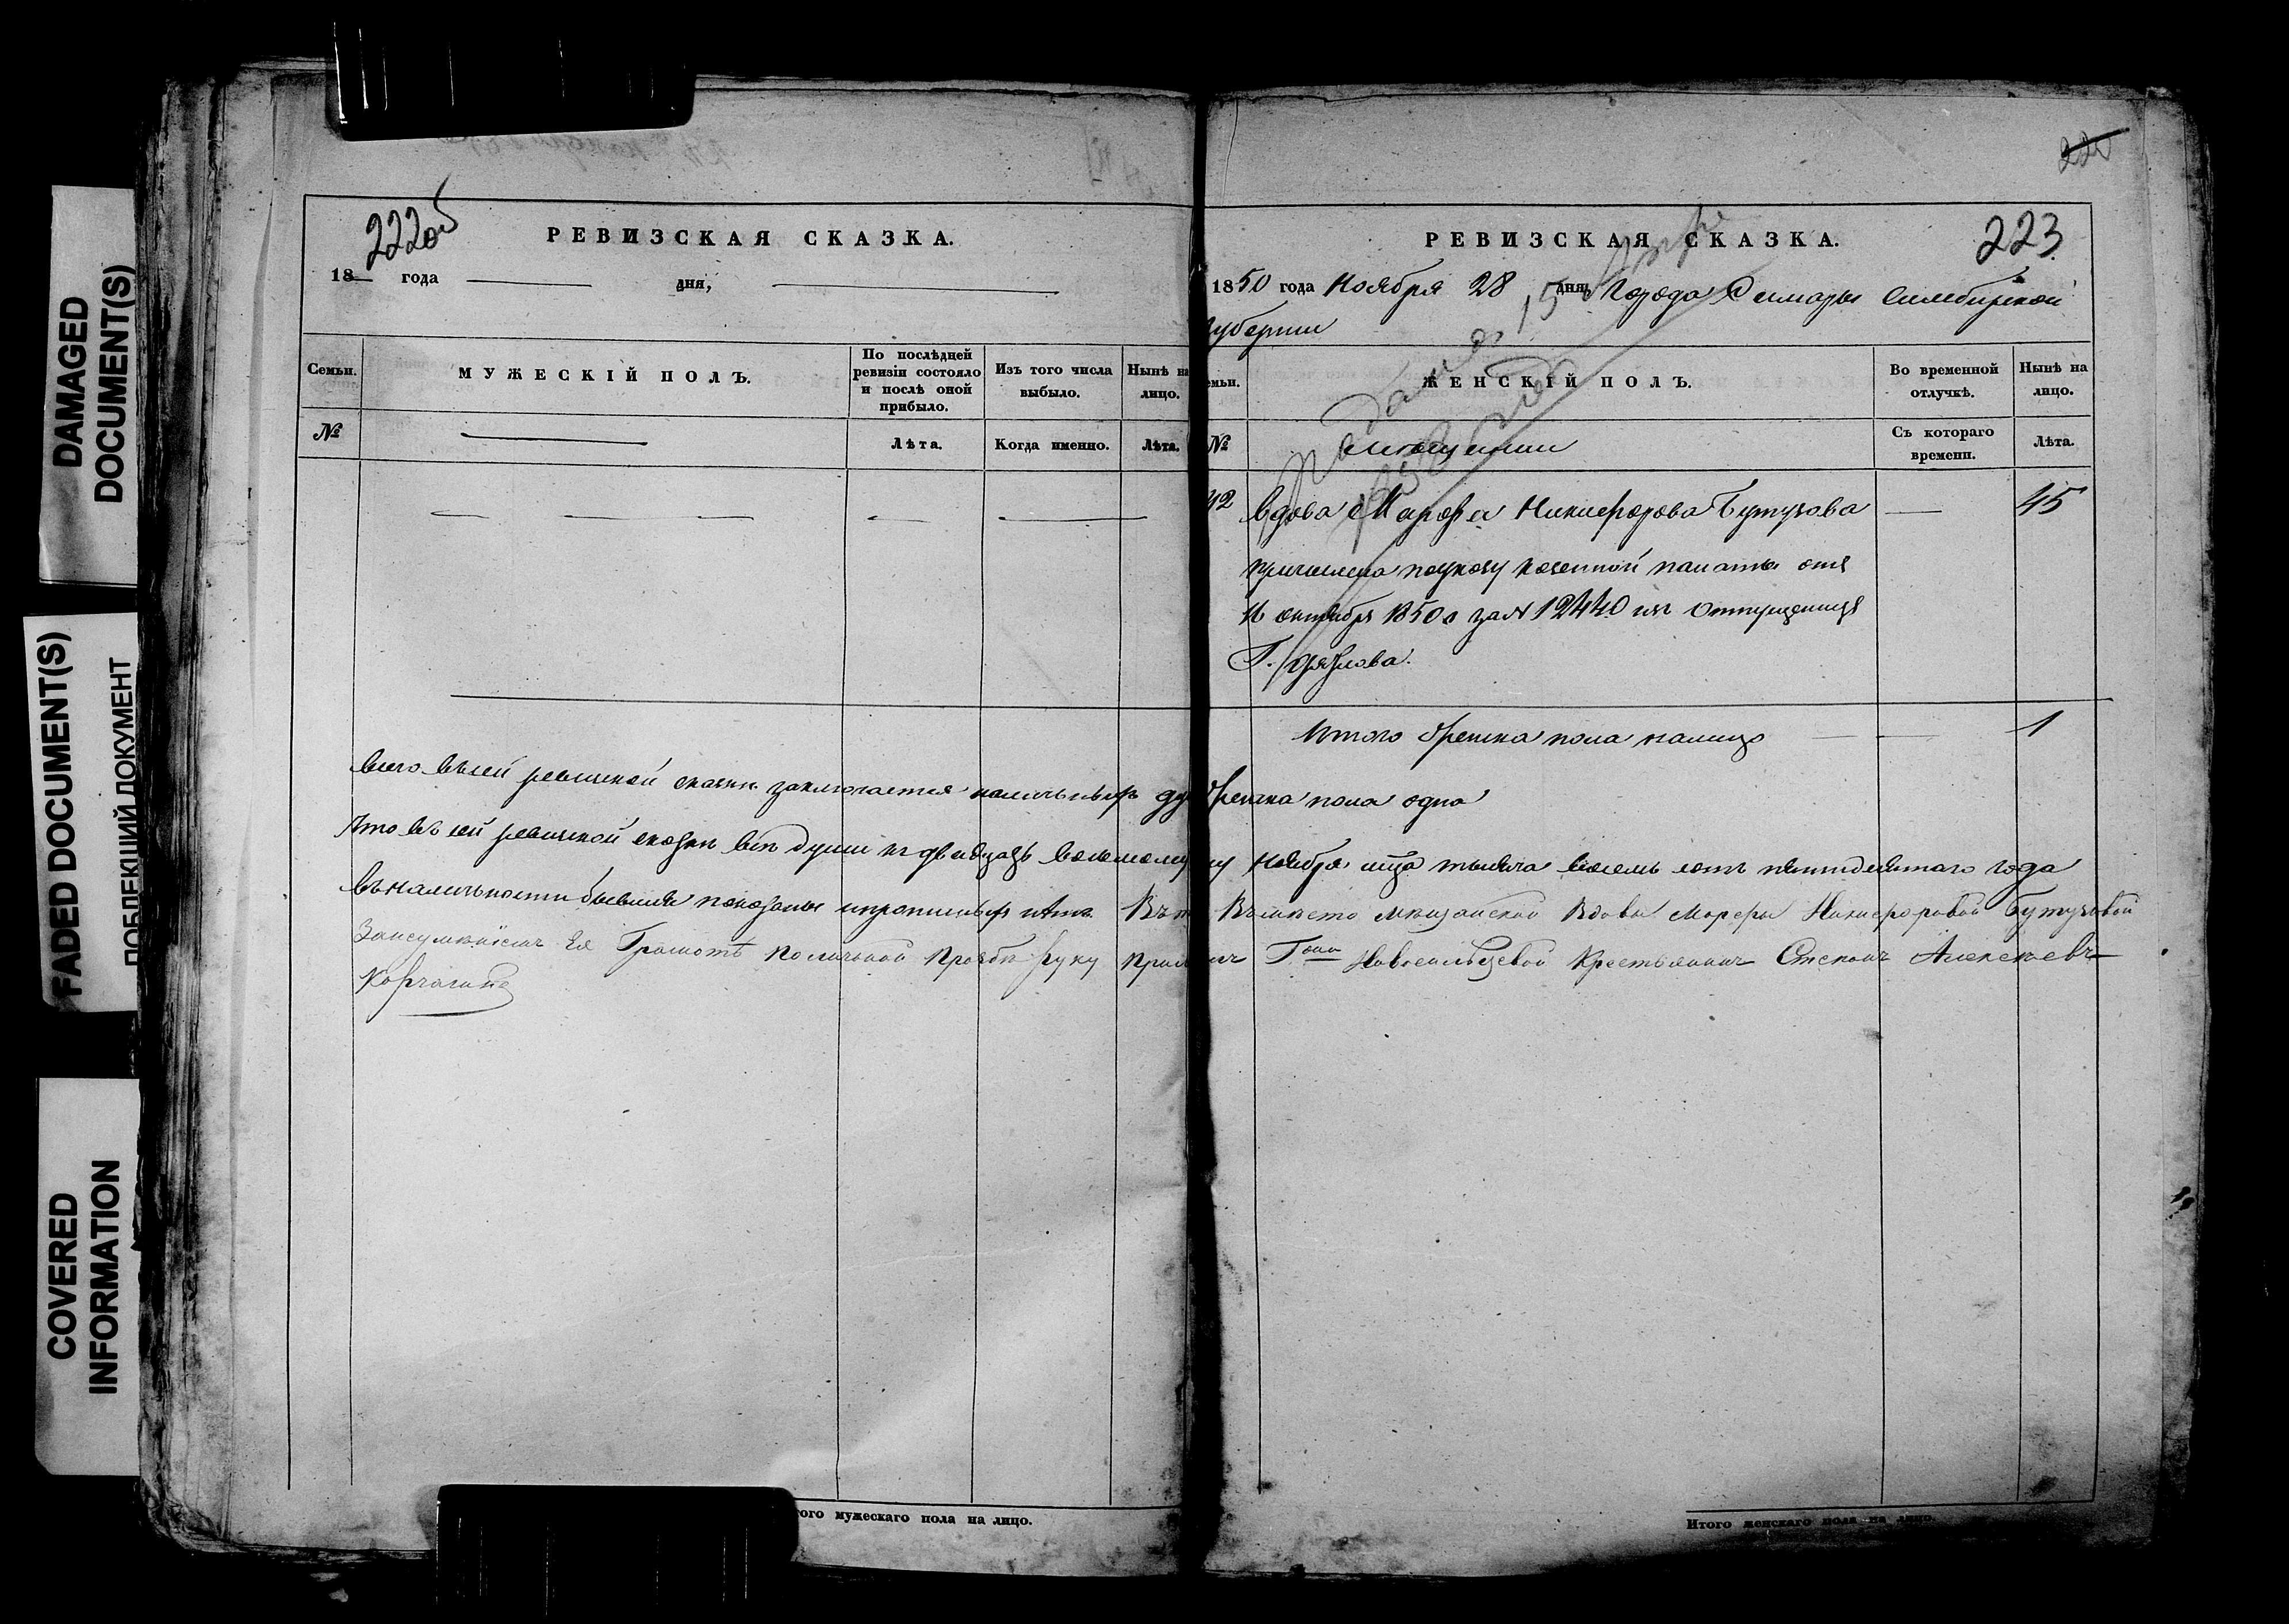 DAMAGED DOCUMENT(S)
FADED DOCUMENT(S)
ПОБЛЕКШИЙ ДОКУМЕНТ
COVERED INFORMATION
222об
РЕВИЗСКАЯ СКАЗКА.
18 года дня,
Семьи.
МУЖЕСКІЙ ПОЛЪ.
По послѣдней ревизіи состояло и послѣ оной прибыло.
Изъ того числа выбыло.
Нынѣ на лицо.
№
Лѣта.
Когда именно.
Лѣта.
223
РЕВИЗСКАЯ СКАЗКА.
1850 года Ноября 28 дня, Города Самары Симбирской
губернии
емьи.
ЖЕНСКІЙ ПОЛЪ.
Во временной отлучкѣ.
Нынѣ на лицо.
№
Съ котораго времени.
Лѣта.
42 вдова Марфа Никифорова Бутузова 45
причислена поуказу казенной палаты отъ
16 октября 1850 за № 12440 изъ отпущенницъ
Г.
Итого женска пола налицо 1
всего въсей ревизской сказки заключается наличныхъ душ женска пола одна
Что въ сей ревизской сказки всѣ души къ двадцать восьмому Ноября мца тысяча восемь сотъ пятидесятаго года
въналичности бывшия показаны ипрописныхъ нѣтъ Въместо мѣщанской Вдовы Марфы Никифоровой Бутузовой
Занеумѣнiемъ Ея Грамотѣ поличной прозбѣ руку приложилъ Гжи Новосильцевой Крестьянинъ Степанъ Алексѣевъ
Корчагинъ
того мужескаго пола на лицо.
Итого женскаго пола на лицо.